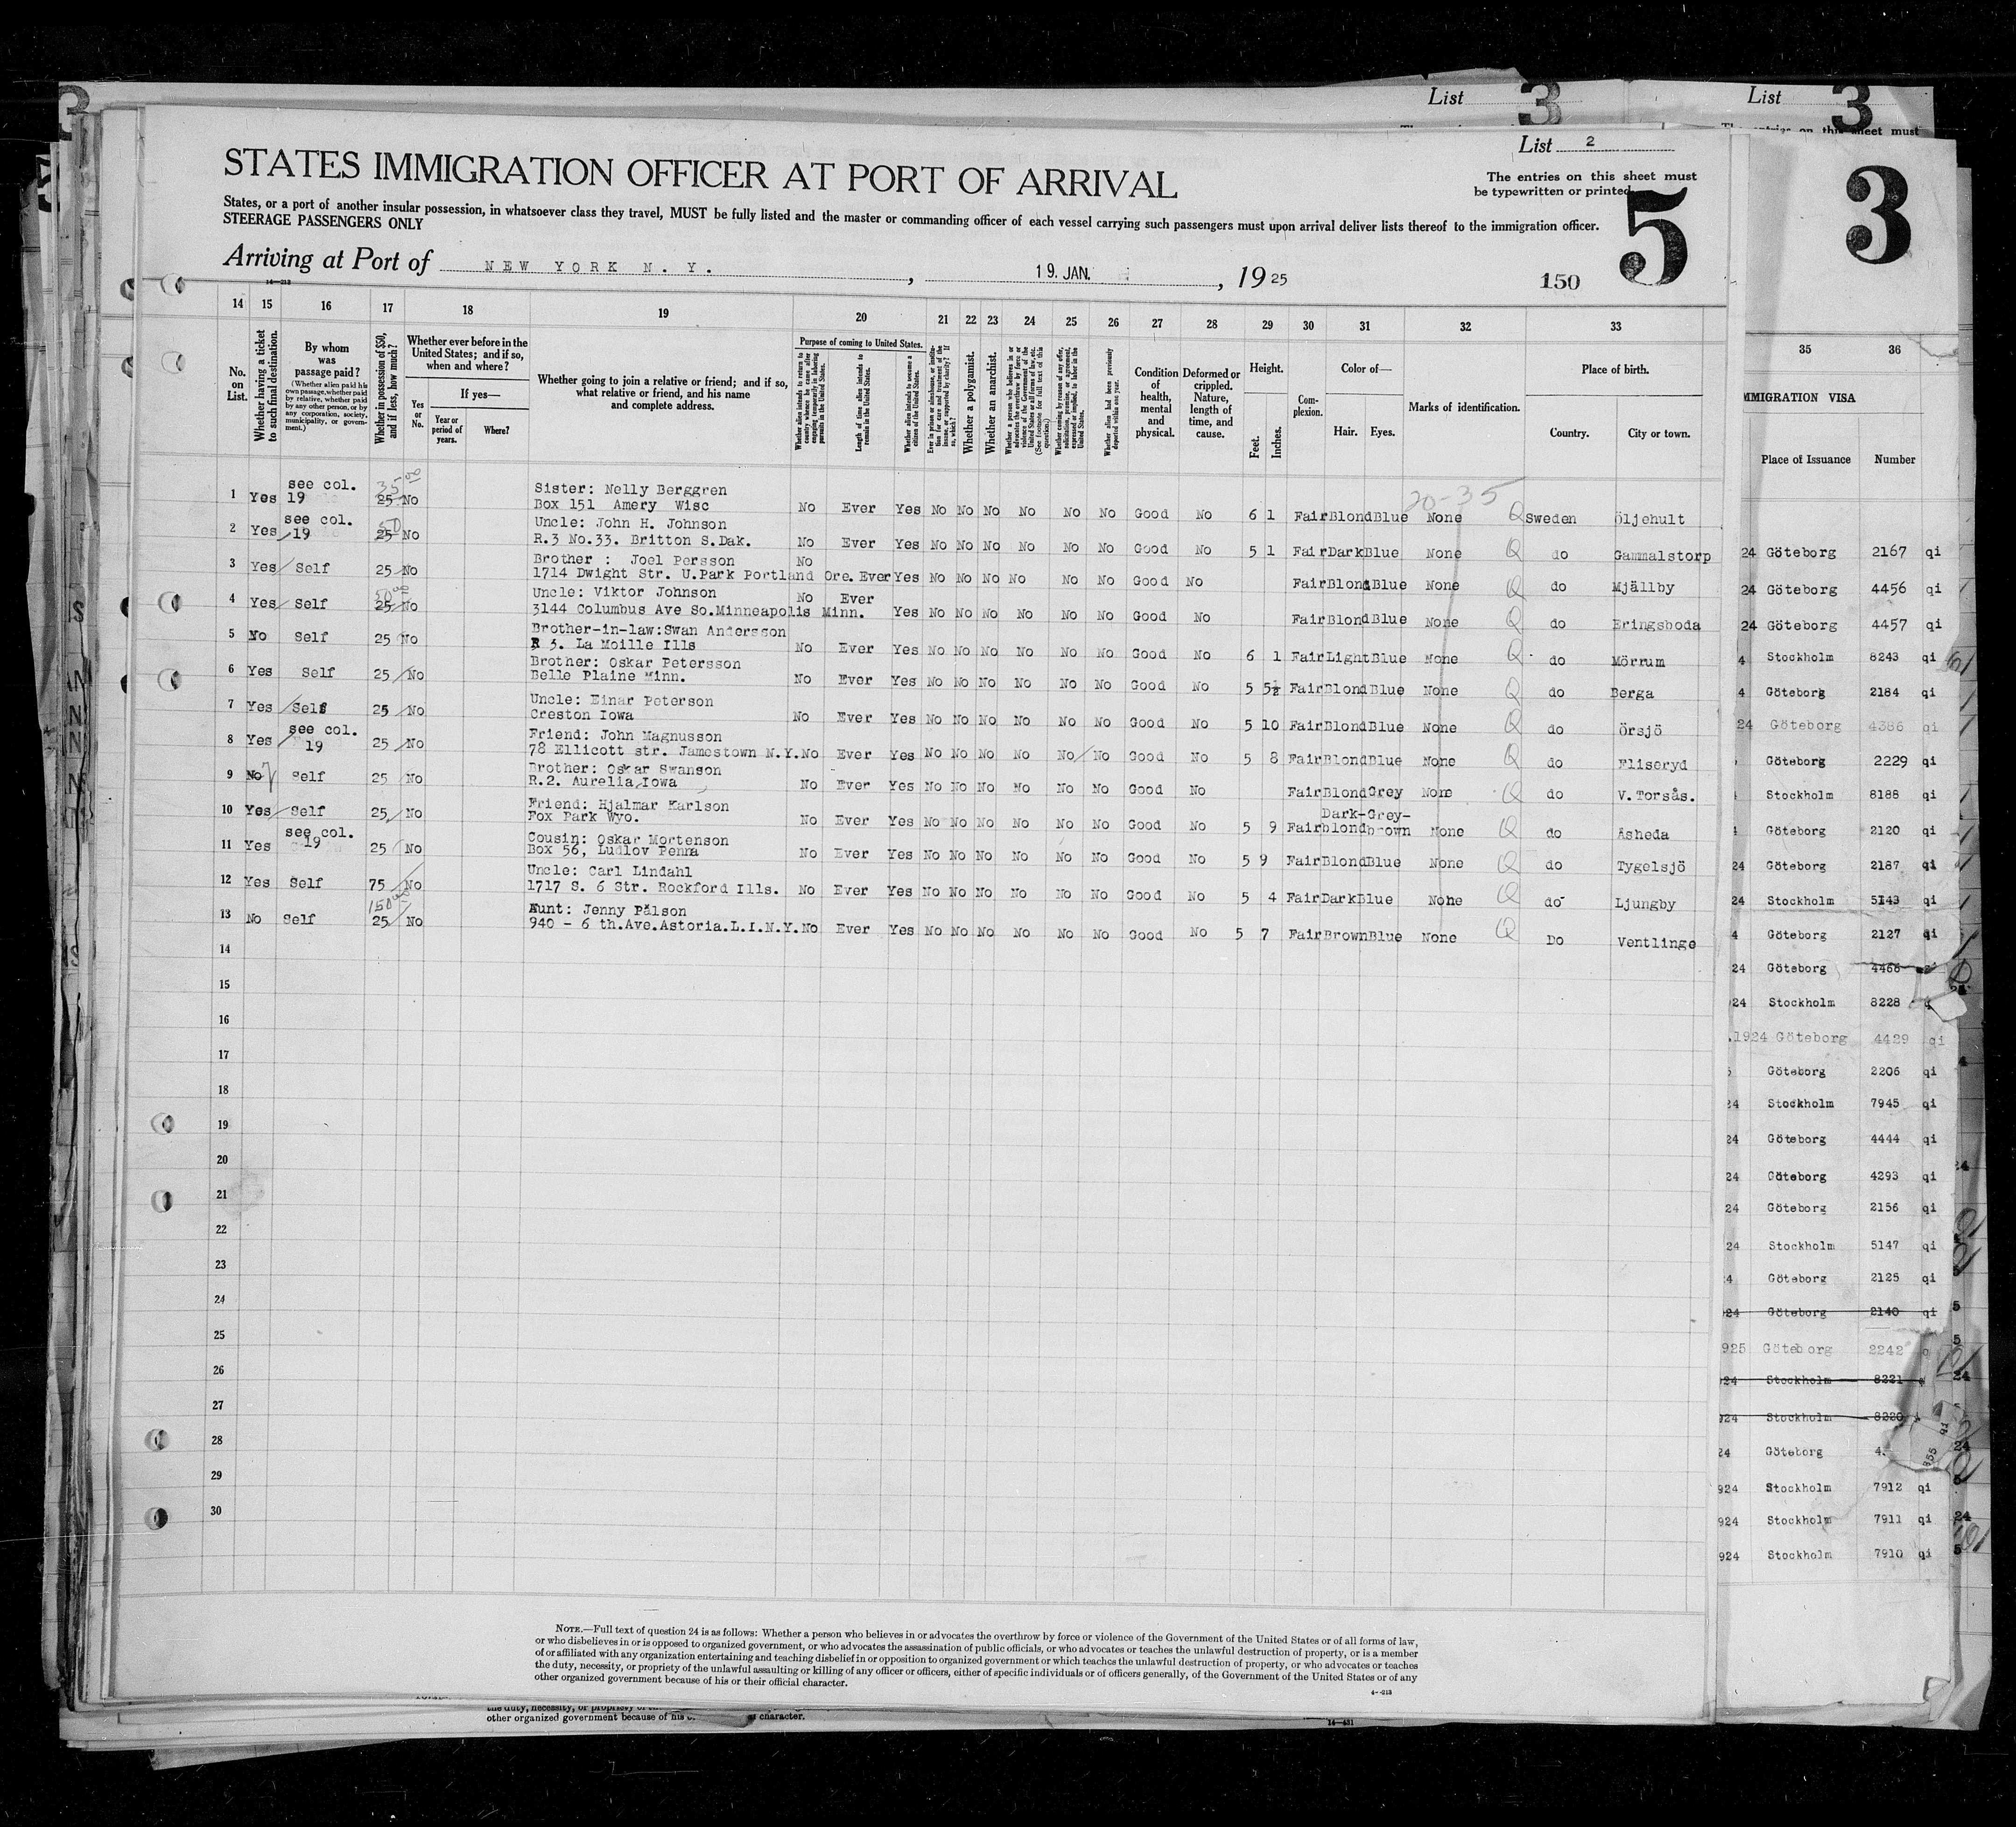 List 3
List 3
The entries on this sheet must
List 2
STATES IMMIGRATION OFFICER AT PORT OF ARRIVAL
The entries on this sheet must
be typewritten or printed
5
3
States, or a port of another insular possession, in whatsoever class they travel, MUST be fully listed and the master or commanding officer of each vessel carrying such passengers must upon arrival deliver lists thereof to the immigration officer.
STEERAGE PASSENGERS ONLY
Arriving at Port of NEW YORK N. Y. , 19. JAN. , 1925
150
14—213
14 15 16 17 18 19 20 21 22 23 24 25 26 27 28 29 30 31 32 33
No. on List.
Whether having a ticket to such final destination.
By whom was passage paid?
(Whether alien paid his own passage, whether paid by relative, whether paid by any other person, or by any corporation, society, municipality, or government.)
Whether in possession of $50, and if less, how much?
Whether ever before in the United States; and if so, when and where?
Yes or No.
If yes—
Year or period of years.
Where?
Whether going to join a relative or friend; and if so, what relative or friend, and his name and complete address.
Purpose of coming to United States.
Whether alien intends to return to country whence he came after engaging temporarily in laboring pursuits in the United States.
Length of time alien intends to remain in the United States.
Whether alien intends to become a citizen of the United States.
Ever in prison or almshouse, or institution for care and treatment of the insane, or supported by charity? If so, which?
Whether a polygamist.
Whether an anarchist.
Whether a person who believes in or advocates the overthrow by force or violence of the Government of the United States or all forms of law, etc. (See footnote for full text of this question.)
Whether coming by reason of any offer, solicitation, promise, or agreement, expressed or implied, to labor in the United States.
Whether alien had been previously deported within one year.
Condition of health, mental and physical.
Deformed or crippled. Nature, length of time, and cause.
Height.
Feet. Inches.
Complexion.
Color of—
Hair. Eyes.
Marks of identification.
Place of birth.
Country. City or town.
20-35
1 Yes see col. 19 25 35 00 No Sister: Nelly Berggren Box 151 Amery Wisc No Ever Yes No No No No No No Good No 6 1 Fair Blond Blue None Q Sweden Öljehult
2 Yes see col. 19 25 50 No Uncle: John H. Johnson R.3 No.33. Britton S.Dak. No Ever Yes No No No No No No Good No 5 1 Fair Dark Blue None Q do Gammalstorp
3 Yes Self 25 No Brother : Joel Persson 1714 Dwight Str. U.Park Portland Ore. No Ever Yes No No No No No No Good No Fair Blond Blue None Q do Mjällby
4 Yes Self 25 50 00 No Uncle: Viktor Johnson 3144 Columbus Ave So.Minneapolis Minn. No Ever Yes No No No No No No Good No Fair Blond Blue None Q do Eringsboda
5 No Self 25 No Brother-in-law:Swan Andersson R 3. La Moille Ills No Ever Yes No No No No No No Good No 6 1 Fair Light Blue None Q do Mörrum
6 Yes Self 25 No Brother: Oskar Petersson Belle Plaine Minn. No Ever Yes No No No No No No Good No 5 5½ Fair Blond Blue None Q do Berga
7 Yes Self 25 No Uncle: Einar Peterson Creston Iowa No Ever Yes No No No No No No Good No 5 10 Fair Blond Blue None Q do Örsjö
8 Yes see col. 19 25 No Friend: John Magnusson 78 Ellicott str. Jamestown N.Y. No Ever Yes No No No No No No Good No 5 8 Fair Blond Blue None Q do Fliseryd
9 No Self 25 No Brother: Oskar Swanson R.2. Aurelia Iowa No Ever Yes No No No No No No Good No Fair Blond Grey None Q do V.Torsås.
10 Yes Self 25 No Friend: Hjalmar Karlson Fox Park Wyo. No Ever Yes No No No No No No Good No 5 9 Fair Dark-blond Grey-brown None Q do Åsheda
11 Yes see col. 19 25 No Cousin: Oskar Mortenson Box 56, Ludlov Penna No Ever Yes No No No No No No Good No 5 9 Fair Blond Blue None Q do Tygelsjö
12 Yes Self 75 No Uncle: Carl Lindahl 1717 S. 6 Str. Rockford Ills. No Ever Yes No No No No No No Good No 5 4 Fair Dark Blue None Q do Ljungby
13 No Self 25 150 00 No Aunt: Jenny Pålson 940 - 6 th.Ave.Astoria.L.I.N.Y. No Ever Yes No No No No No No Good No 5 7 Fair Brown Blue None Q Do Ventlinge
14
15
16
17
18
19
20
21
22
23
24
25
26
27
28
29
30
NOTE.—Full text of question 24 is as follows: Whether a person who believes in or advocates the overthrow by force or violence of the Government of the United States or of all forms of law,
or who disbelieves in or is opposed to organized government, or who advocates the assassination of public officials, or who advocates or teaches the unlawful destruction of property, or is a member
of or affiliated with any organization entertaining and teaching disbelief in or opposition to organized government or which teaches the unlawful destruction of property, or who advocates or teaches
the duty, necessity, or propriety of the unlawful assaulting or killing of any officer or officers, either of specific individuals or of officers generally, of the Government of the United States or of any
other organized government because of his or their official character.
the duty, necessity, or propriety
other organized government because of his character.
14—431
35 36
IMMIGRATION VISA
Place of Issuance Number
24 Göteborg 2167 qi
24 Göteborg 4456 qi
24 Göteborg 4457 qi
4 Stockholm 8243 qi
4 Göteborg 2184 qi
24 Göteborg 4386 qi
Göteborg 2229 qi
Stockholm 8188 qi
4 Göteborg 2120 qi
24 Göteborg 2187 qi
24 Stockholm 5143 qi
4 Göteborg 2127 qi
24 Göteborg 4466
24 Stockholm 8228
.1924 Göteborg 4429 qi
Göteborg 2206 qi
24 Stockholm 7945 qi
24 Göteborg 4444 qi
24 Göteborg 4293 qi
24 Göteborg 2156 qi
24 Stockholm 5147 qi
4 Göteborg 2125 qi
24 Göteborg 2140 qi
925 Göteborg 2242
24 Stockholm 8221
924 Stockholm 8220
24 Göteborg
924 Stockholm 7912 qi
924 Stockholm 7911 qi
924 Stockholm 7910 qi